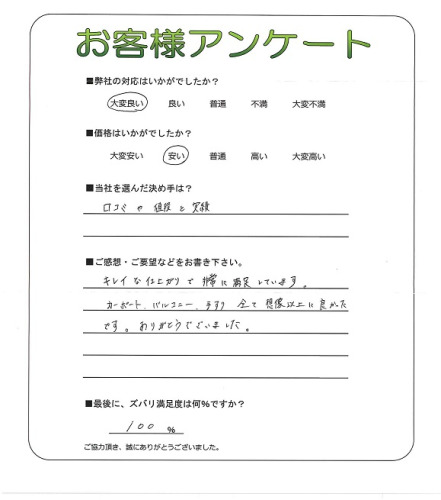 お客様アンケート
■弊社の対応はいかがでしたか?
大変良い 良い 普通 不満 大変不満
■価格はいかがでしたか?
大変安い 安い 普通 高い 大変高い
■当社を選んだ決め手は?
口コミや値段と実績
■ご感想・ご要望などをお書き下さい。
キレイな仕上がりで非常に満足しています。
カーポート、バルコニー、手すり 全て想像以上に良かった
です。ありがとうございました。
■最後に、ズバリ満足度は何%ですか?
100 %
ご協力頂き、誠にありがとうございました。